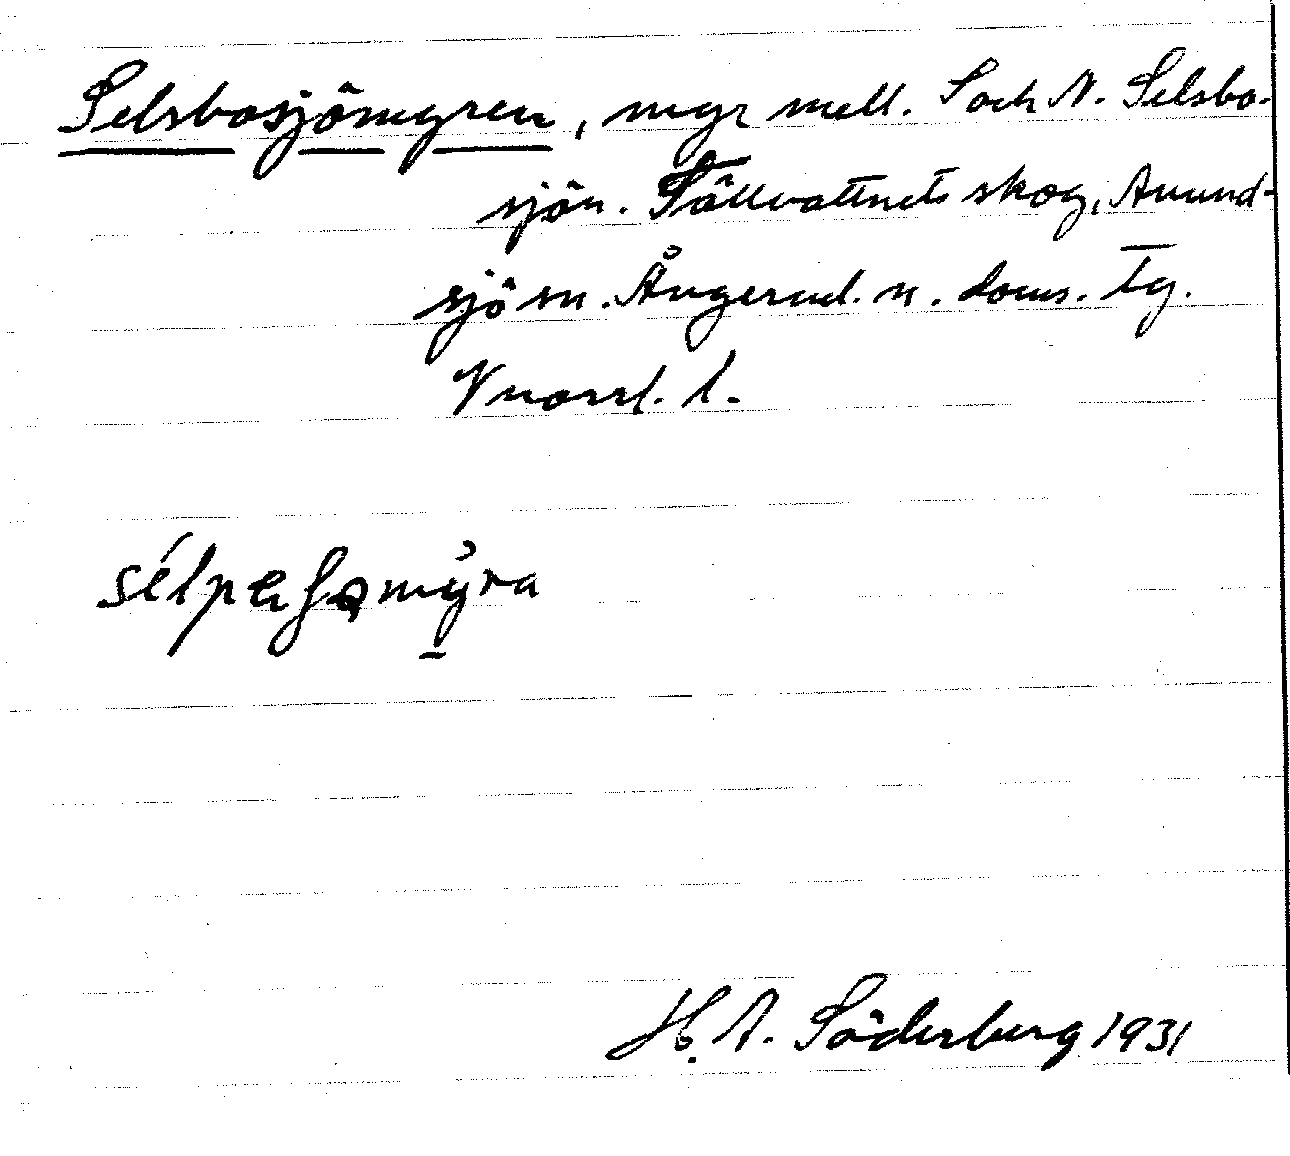 Selsbosjömyren, myr mell. S och N. Selsbo-
sjön. Tällvattnets skog, Anund-
sjö sn. Ångerml. n. doms. Tg.
Vnorrl. l.
H. A. Söderberg 1931